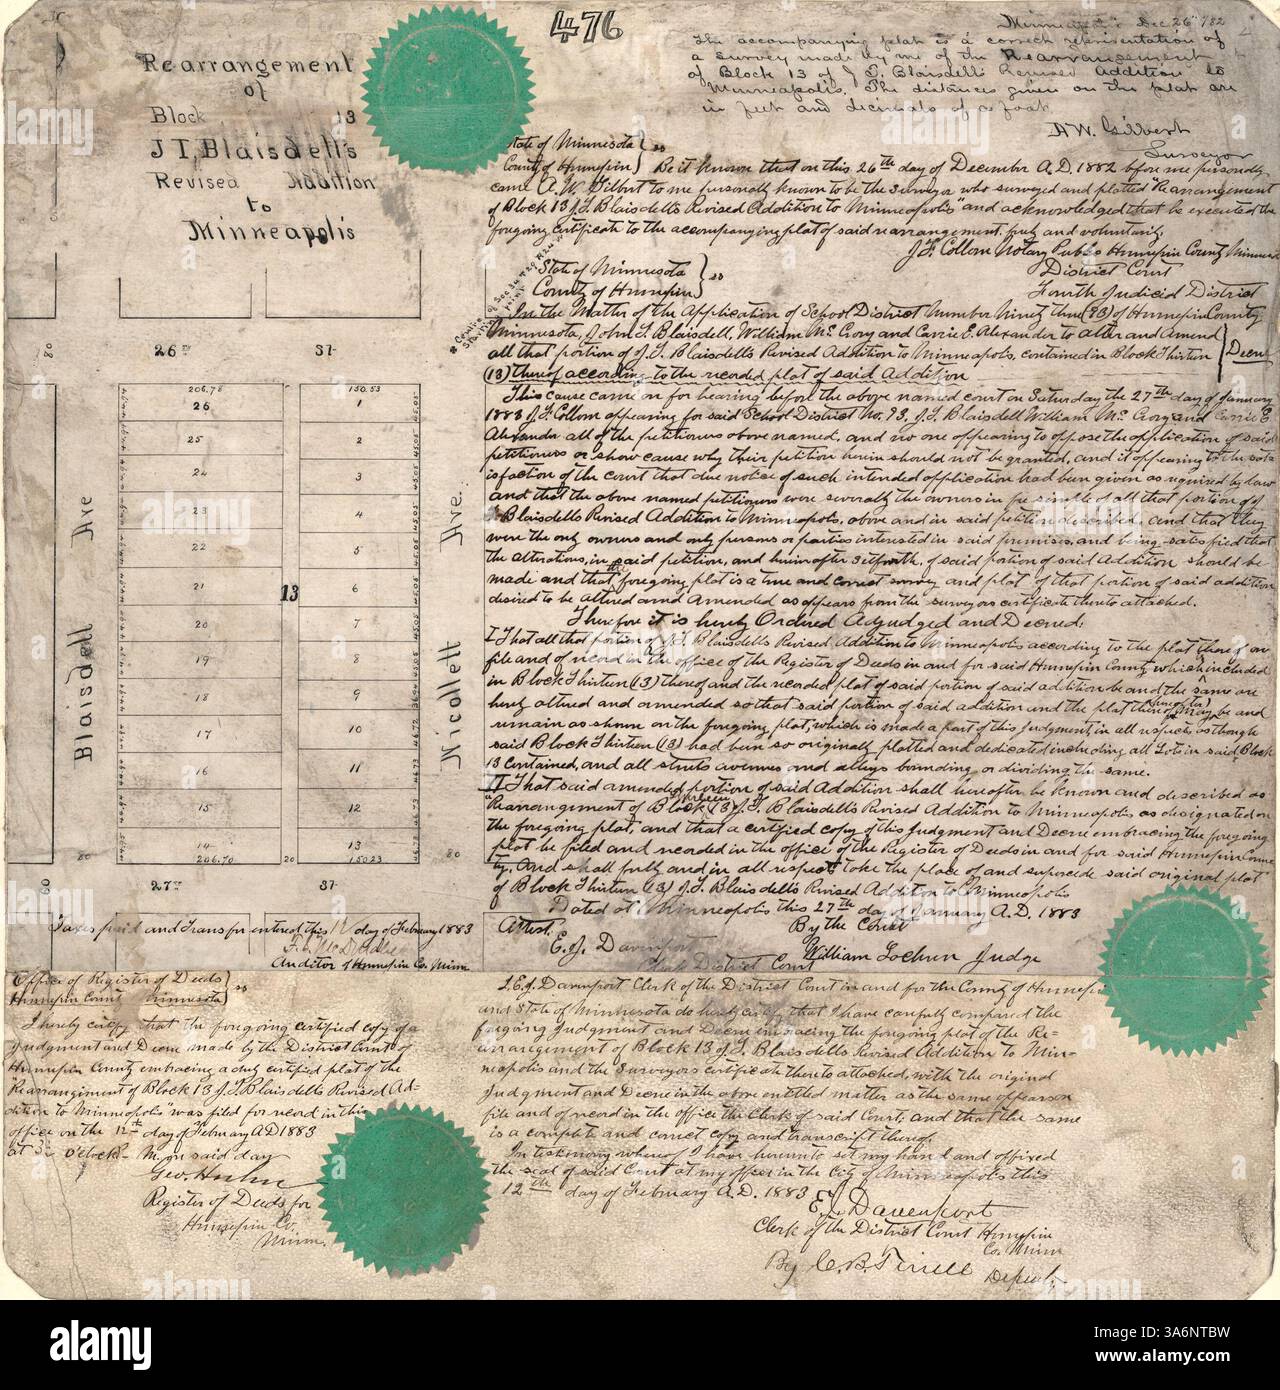 476
Rearrangement
of
Block 13
J T, Blaisdell's
Revised Addition
to
Minneapolis
Minneapolis Dec 26th 1882
The accompanying plat is a correct representation of
a survey made by me of the Rearrangement
of Block 13 of J T. Blaisdell's Revised Addition to
Minneapolis. The distances given on the plat are
in feet and decimals of a foot
A W. Gilbert
Surveyor
State of Minnesota
County of Hennepin } ss Be it known that on this 26th day of December A.D. 1882 before me personally
came A. W. Gilbert to me personally known to be the surveyor who surveyed and platted "Rearrangement
of Block 13 J. T. Blaisdell's Revised Addition to Minneapolis" and acknowledged that he executed the
foregoing certificate to the accompanying plat of said rearrangement, freely and voluntarily.
J F Collom Notary Public Hennepin County Minnesota
State of Minnesota
County of Hennepin } ss
District Court
Fourth Judicial District
In the Matter of the Application of School District Number Ninety three (93) of Hennepin County
Minnesota, John T. Blaisdell, William Mc Crory and Carrie E. Alexander to alter and Amend
all that portion of J. T. Blaisdell's Revised Addition to Minneapolis, contained in Block Thirteen
(13) thereof according to the recorded plat of said Addition } Decree
This cause came on for hearing before the above named court on Saturday the 27th day of January
1883 J. F. Collom appearing for said School District No. 93, J. T. Blaisdell William Mc Crory and Carrie E
Alexander all of the petitioners above named, and no one appearing to oppose the application of said
petitioners or show cause why their petition herein should not be granted, and it appearing to the sat-
isfaction of the court that due notice of such intended application had been given as required by law
and that the above named petitioners were severally the owners in fee simple of all that portion of J
T Blaisdell's Revised Addition to Minneapolis, above and in said petition described, and that they
were the only owners and only persons or parties interested in said premises, and being satisfied that
the alterations, in said petition, and hereinafter set forth, of said portion of said Addition should be
made and that the foregoing plat is a true and correct survey and plat of that portion of said addition
desired to be altered and amended as appears from the surveyors certificate thereto attached.
Therefore it is hereby Ordered Adjudged and Decreed:
I That all that portion of J. T. Blaisdell's Revised Addition to Minneapolis according to the plat thereof on
file and of record in the office of the Register of Deeds in and for said Hennepin County which is included
in Block Thirteen (13) thereof and the recorded plat of said portion of said addition be and the same are
hereby altered and amended so that said portion of said addition and the plat thereof may be and
remain as shown on the foregoing plat, which is made a part of this Judgment, in all respects as though
said Block Thirteen (13) had been so originally platted and dedicated including all Lots in said Block
13 contained, and all streets avenues and alleys bounding or dividing the same.
II That said amended portion of said Addition shall hereafter be known and described as
"Rearrangement of Block thirteen (13) J. T. Blaisdell's Revised Addition to Minneapolis as designated on
the foregoing plat, and that a certified copy of this Judgment and Decree embracing the foregoing
plat be filed and recorded in the office of the Register of Deeds in and for said Hennepin Coun-
ty, And shall fully and in all respects take the place of and supercede said original plat
of Block Thirteen (13) J. T. Blaisdell's Revised Addition to Minneapolis
Dated at Minneapolis this 27th day of January A. D. 1883
By the Court
Attest.
E. J. Davenport
Clerk District Court
William Lochren Judge
80 26th 37
206.78 13 150.53
26 1
25 2
24 3
23 4
22 5
21 6
20 7
19 8
18 9
17 10
16 11
15 12
14 13
206.70 20 150.23
80 80
60 27th 37
Blaisdell Ave
Nicollett Ave.
Taxes paid and Transfer entered this 12 day of February 1883
Auditor of Hennepin Co. Minn
Office of Register of Deeds
Hennepin County Minnesota } ss
I hereby certify that the foregoing certified copy of a
Judgment and Decree made by the District Court of
Hennepin County embracing a duly certified plat of the
"Rearrangement of Block 13 J. T. Blaisdell's Revised Ad-
dition to Minneapolis" was filed for record in this
office on the 12th day of February A D 1883
at 3 o'clock M. on said day
Register of Deeds for
Hennepin Co.
Minn.
I, E. J. Davenport Clerk of the District Court in and for the County of Hennepin
and State of Minnesota do hereby certify that I have carefully compared the
foregoing Judgment and Decree embracing the foregoing plat of the Re-
arrangement of Block 13 J. T. Blaisdell's Revised Addition to Min-
neapolis and the Surveyors certificate thereto attached, with the original
Judgment and Decree in the above entitled matter as the same appears on
file and of record in the office the Clerk of said Court; and that the same
is a complete and correct copy and transcript thereof.
In testimony whereof I have hereunto set my hand and affixed
the seal of said Court at my office in the City of Minneapolis this
12th day of February A.D. 1883
E. J. Davenport
Clerk of the District Court Hennepin
Co. Minn
By C. B. Tirrell Deputy
alamy
Image ID: 3A6NTBW
www.alamy.com